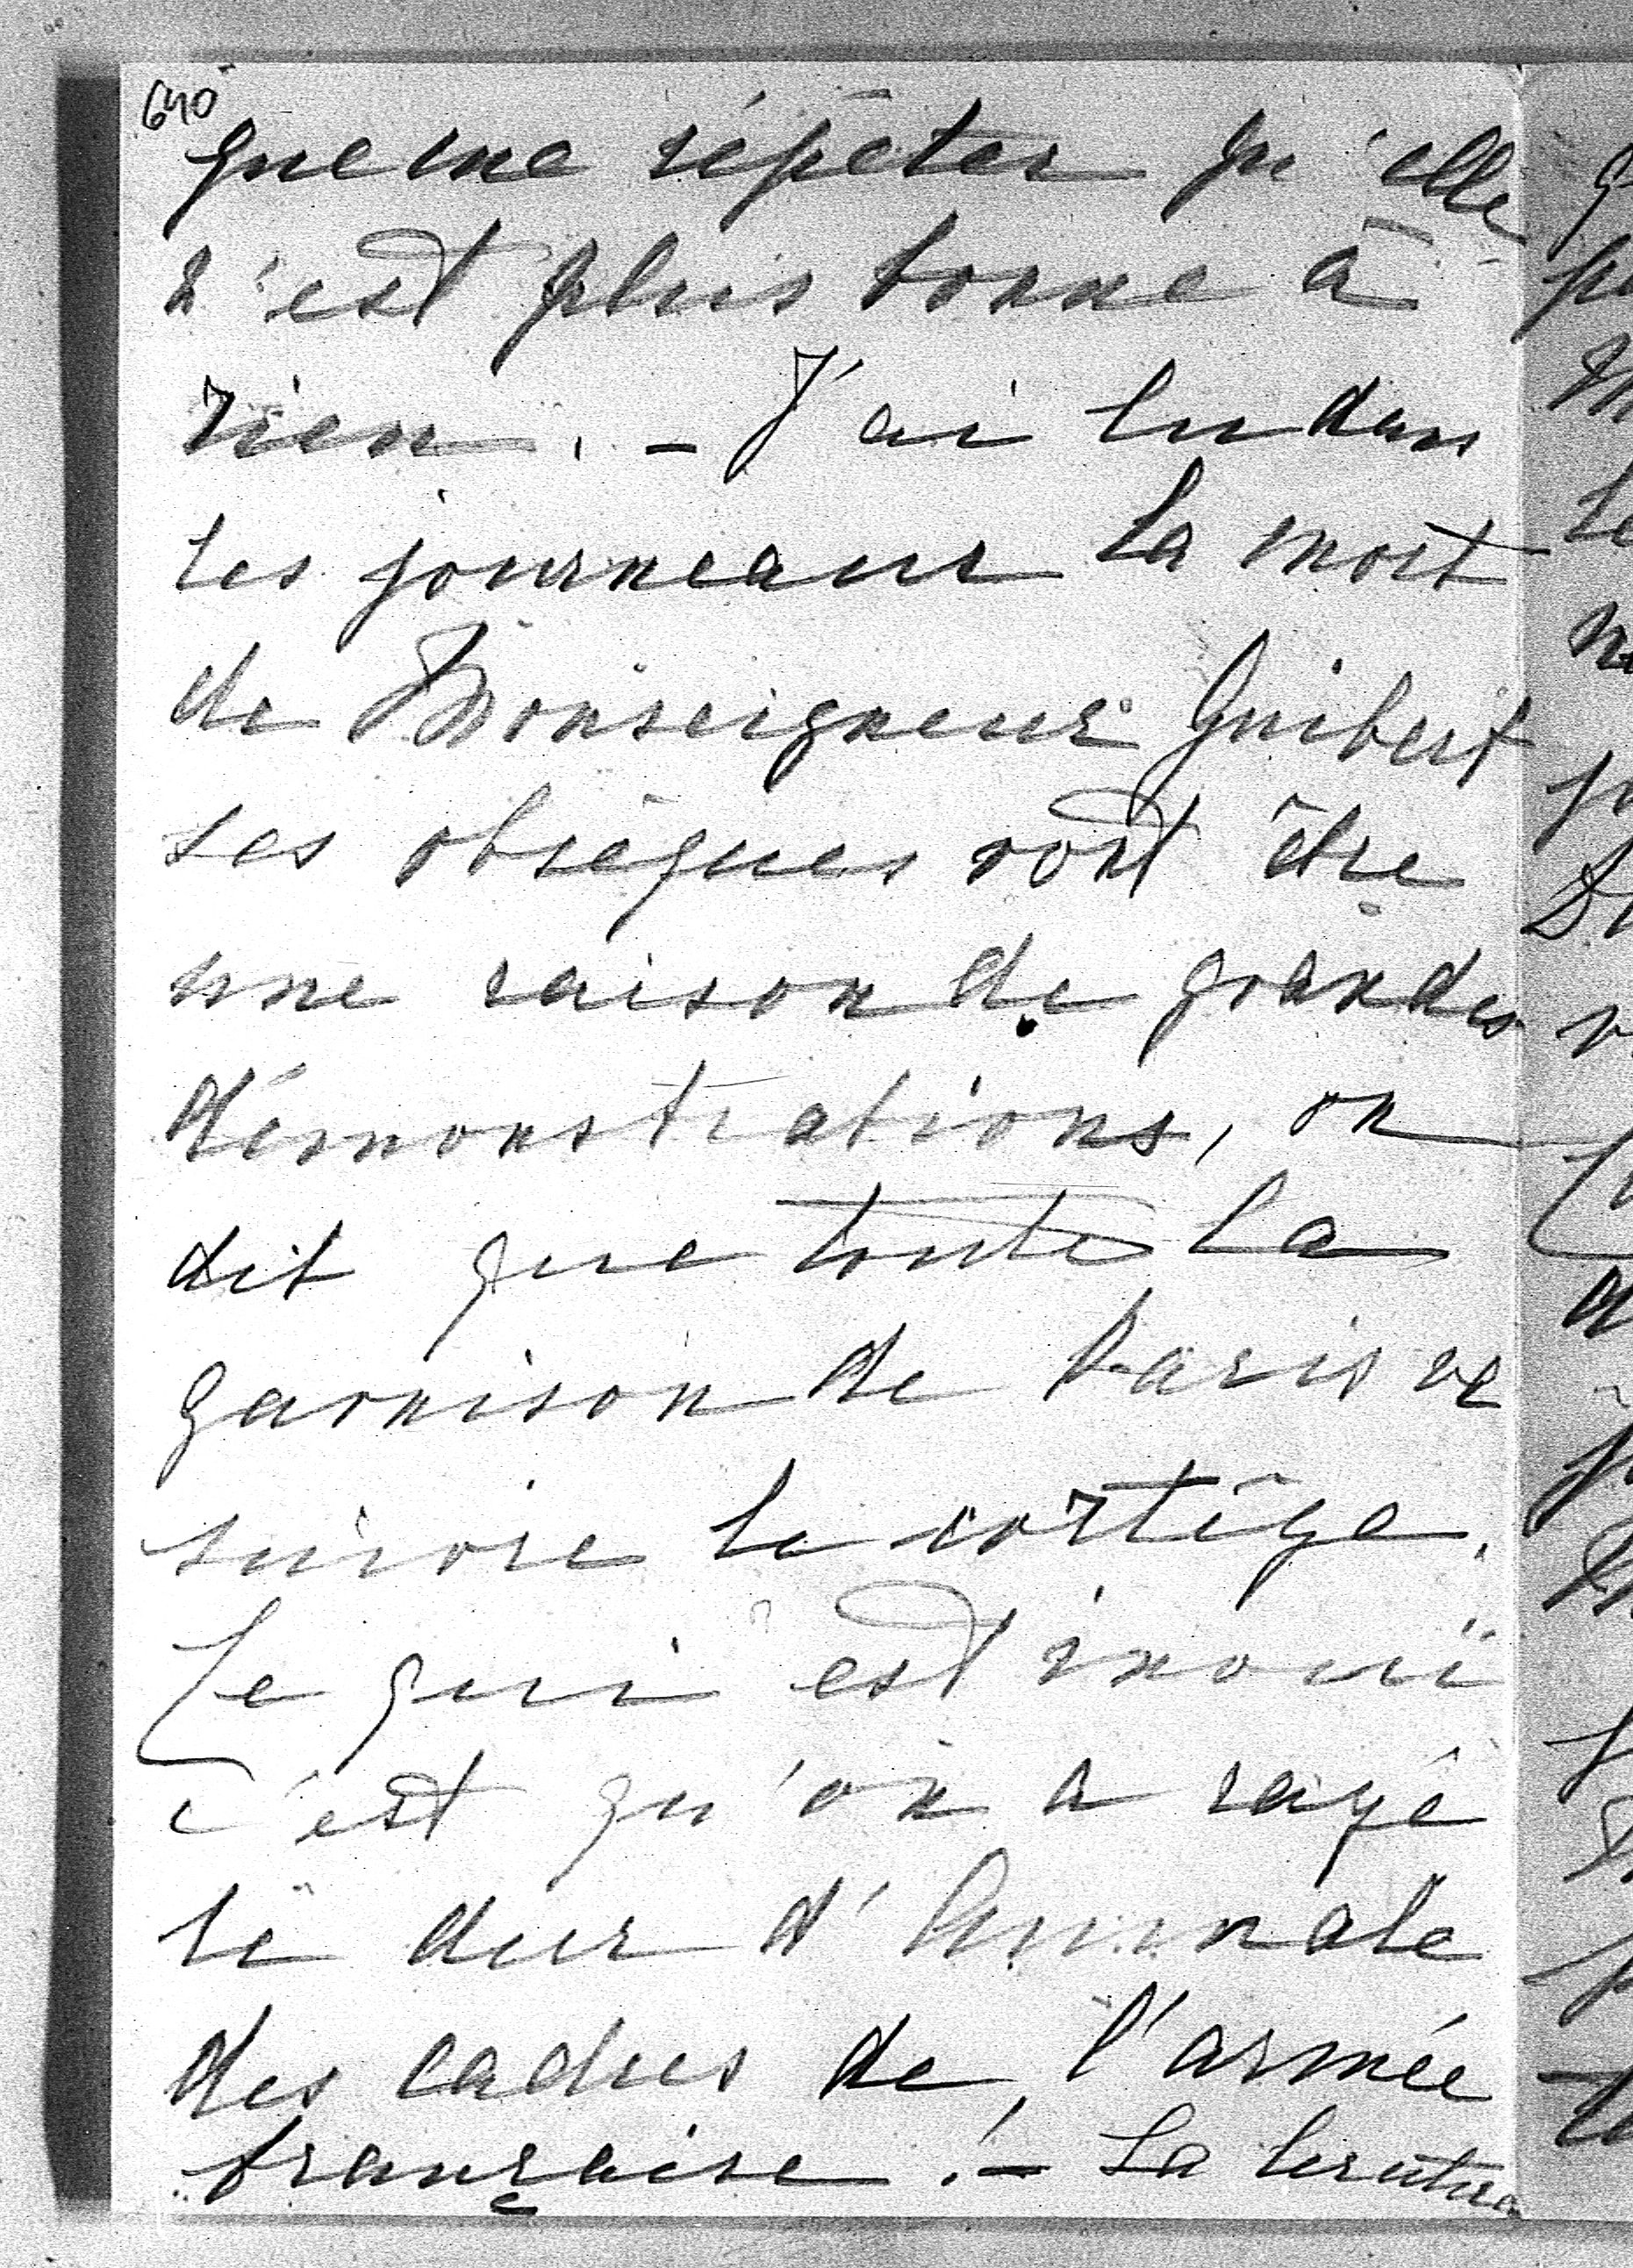 640
que me répéter qu'elle
n'est plus bonne à
rien. - J'ai lu dans
les journeaux la mort
de Monseigneur Guibert
ses obsèques vont être
une raison de grandes
démonstrations, on
dit que toute la
garnison de Paris va
suivre le cortège.
Ce qui est inouï
c'est qu'on a rayé
le duc d'Aumale
des cadres de l'armée
française! - La